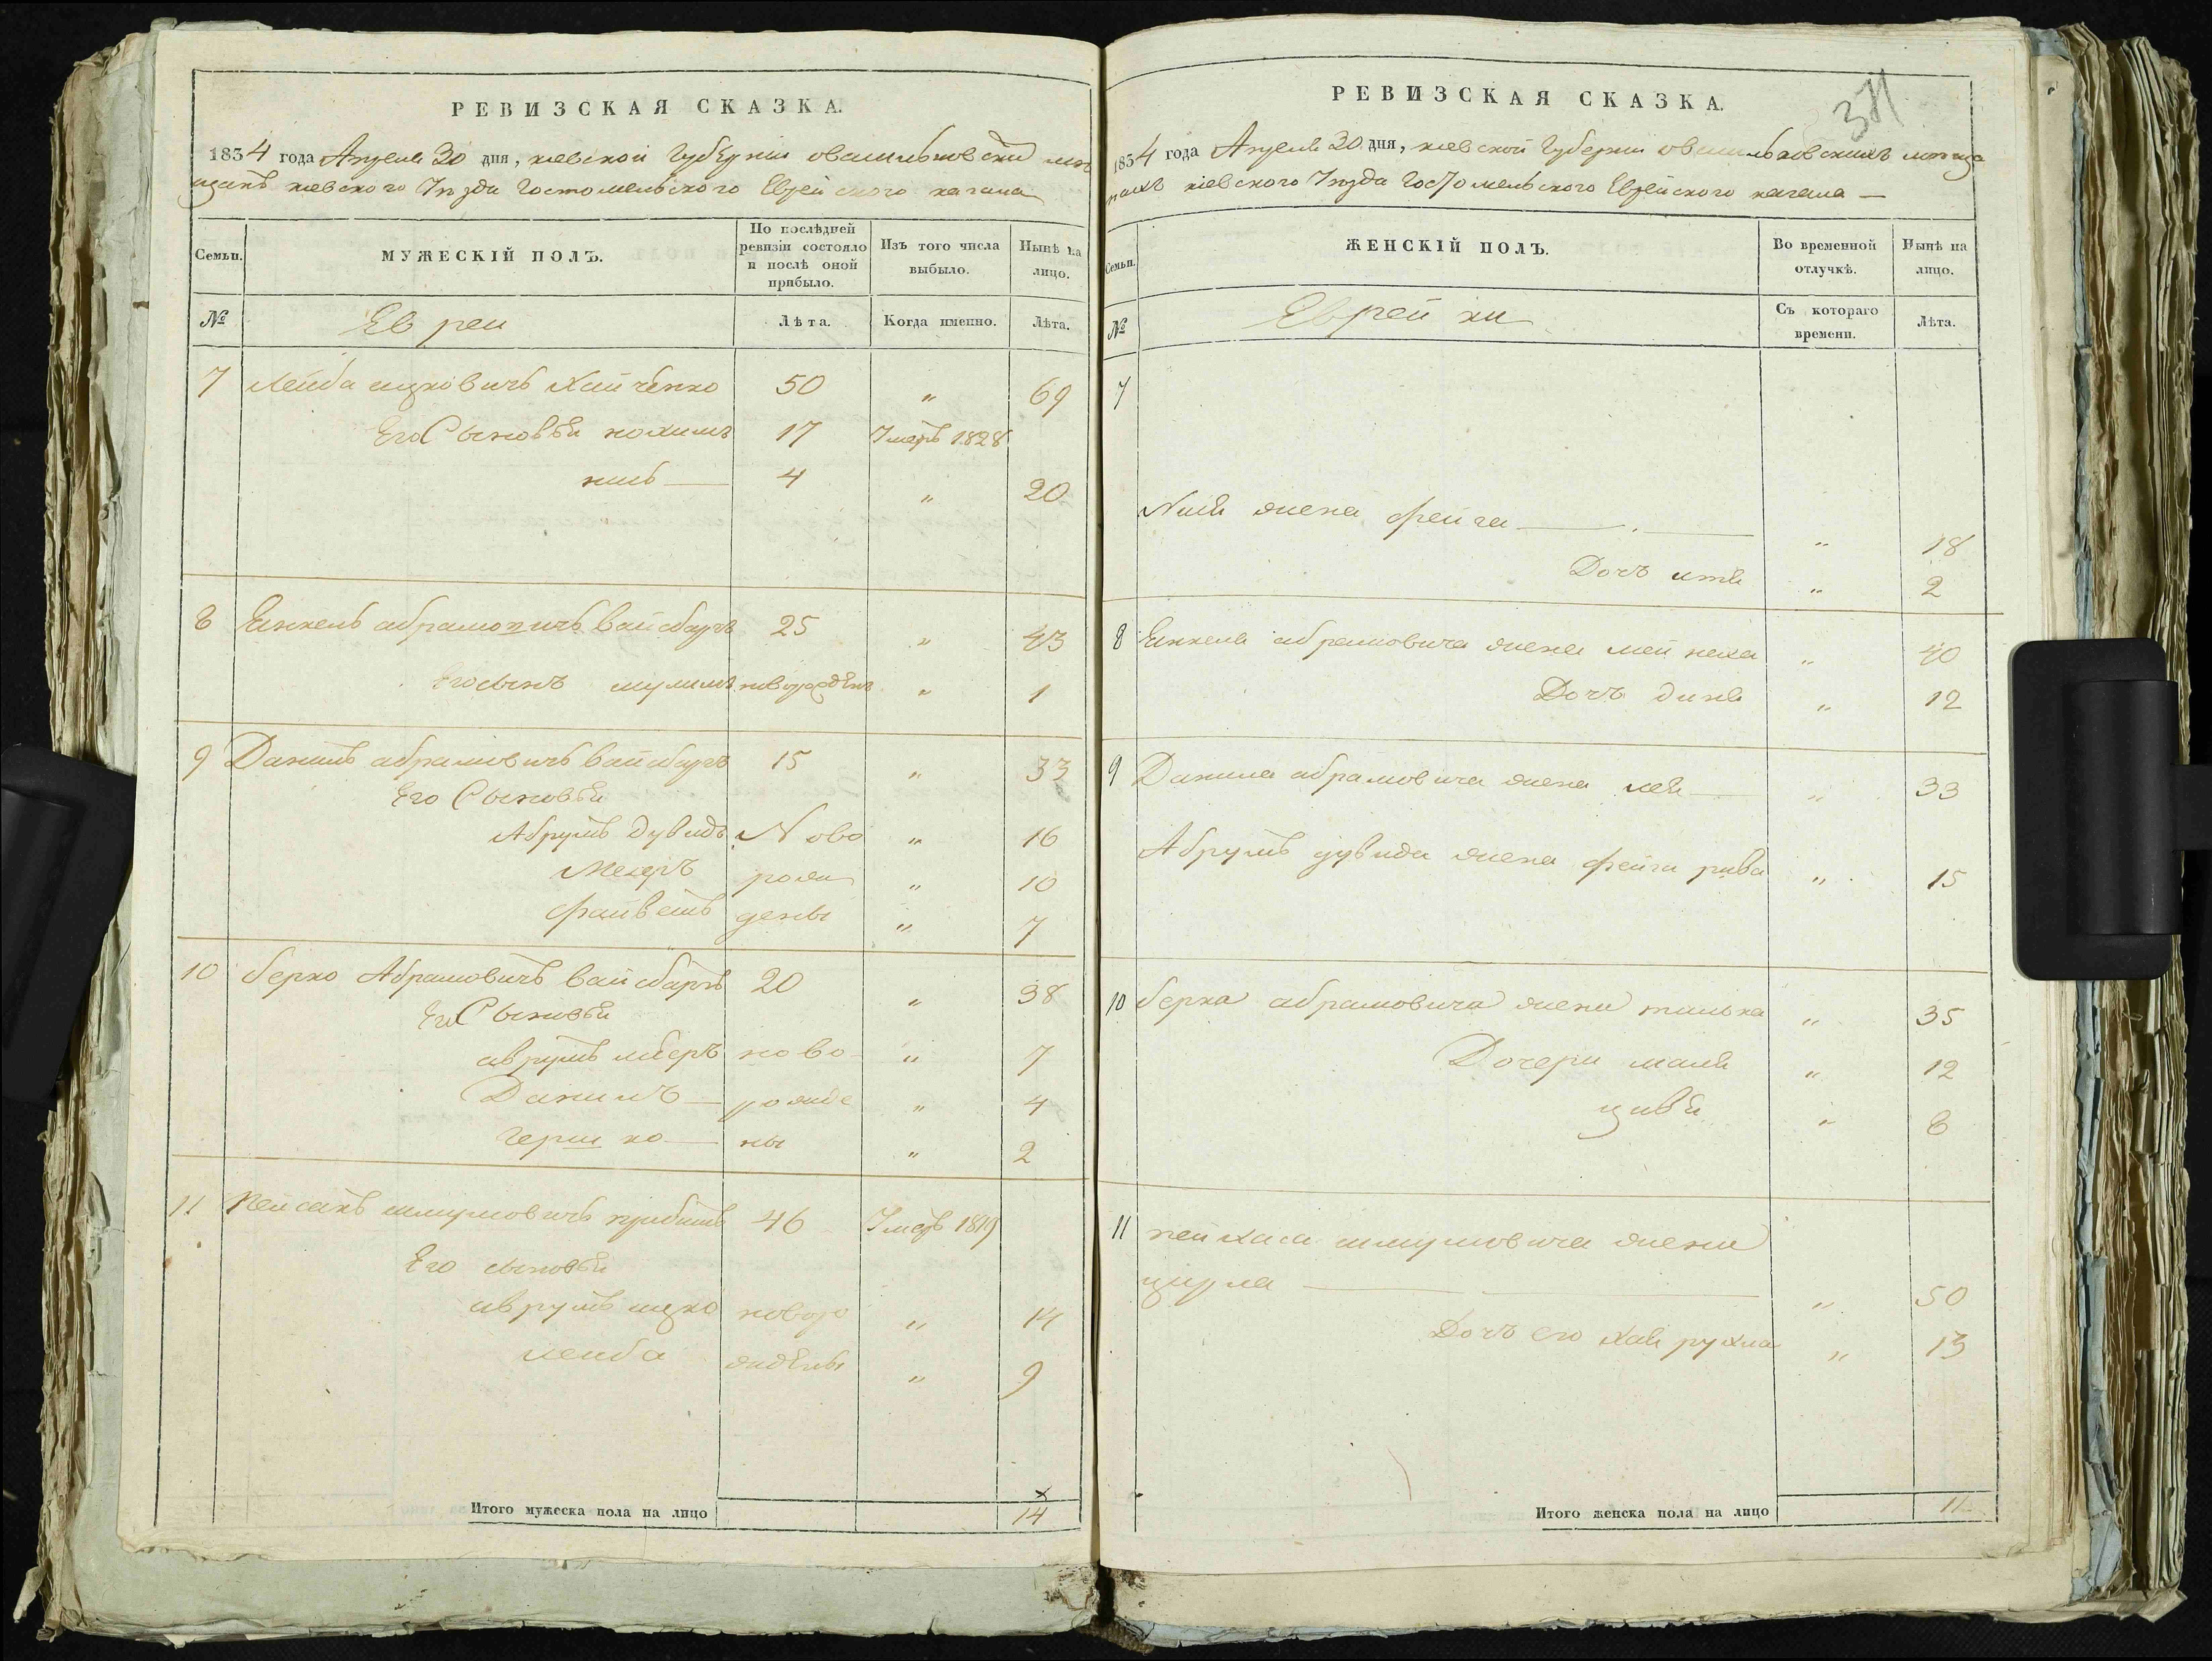 РЕВИЗСКАЯ СКАЗКА.
1834 года Апреля 30 дня, киевской Губернии овасильковски мѣ
щанъ киевского Уѣзда Гостомельского Еврейского кагала
Семьи. МУЖЕСКІЙ ПОЛЪ. По послѣдней ревизіи состояло и послѣ оной прибыло. Изъ того числа выбыло. Нынѣ на лицо.
№ Евреи Лѣта. Когда именно. Лѣта.
7 Лейба ицковичъ Хайченко 50 „ 69
Его Сыновья нохимъ 17 Умеръ 1828
4 „ 20
8 Янкель абрамовичъ Вайсбургъ 25 „ 43
Его сынъ новорожденъ „ 1
9 Данилъ абрамовичъ вайсбургъ 15 „ 33
Его Сыновья
Абрумъ дувидъ Ново „ 16
Мееръ рож „ 10
Файвешъ дены „ 7
10 берко Абрамовичъ вайсбаргъ 20 „ 38
Его Сыновья
аврумъ мееръ ново „ 7
Данилъ рожде „ 4
герш ко ны „ 2
11 шмулловичъ 46 Умеръ 1819
Его сыновья
аврумъ ицко новоро „ 14
лейба жденны „ 9
Итого мужеска пола на лицо 14
РЕВИЗСКАЯ СКАЗКА.
371
1834 года Апреля 30 дня, киевской Губернии овасильковскихъ мѣща
нахъ кіевского Уѣзда Гостомельского Еврейского кагала
Семьи. ЖЕНСКІЙ ПОЛЪ. Во временной отлучкѣ. Нынѣ на лицо.
№ Еврейки Съ котораго времени. Лѣта.
7
жена фейга „ 18
Дочь итя „ 2
8 Янкеля абрамовича жена „ 40
Дочь диня „ 12
9 Данила абрамовича жена лея „ 33
Абрумъ дувида жена фейга рива „ 15
10 берка абрамовича жена „ 35
Дочери маля „ 12
цивя „ 8
11 пейхаса шмулловича жена
цирла „ 50
Дочь его хая рухля „ 13
Итого женска пола на лицо 11